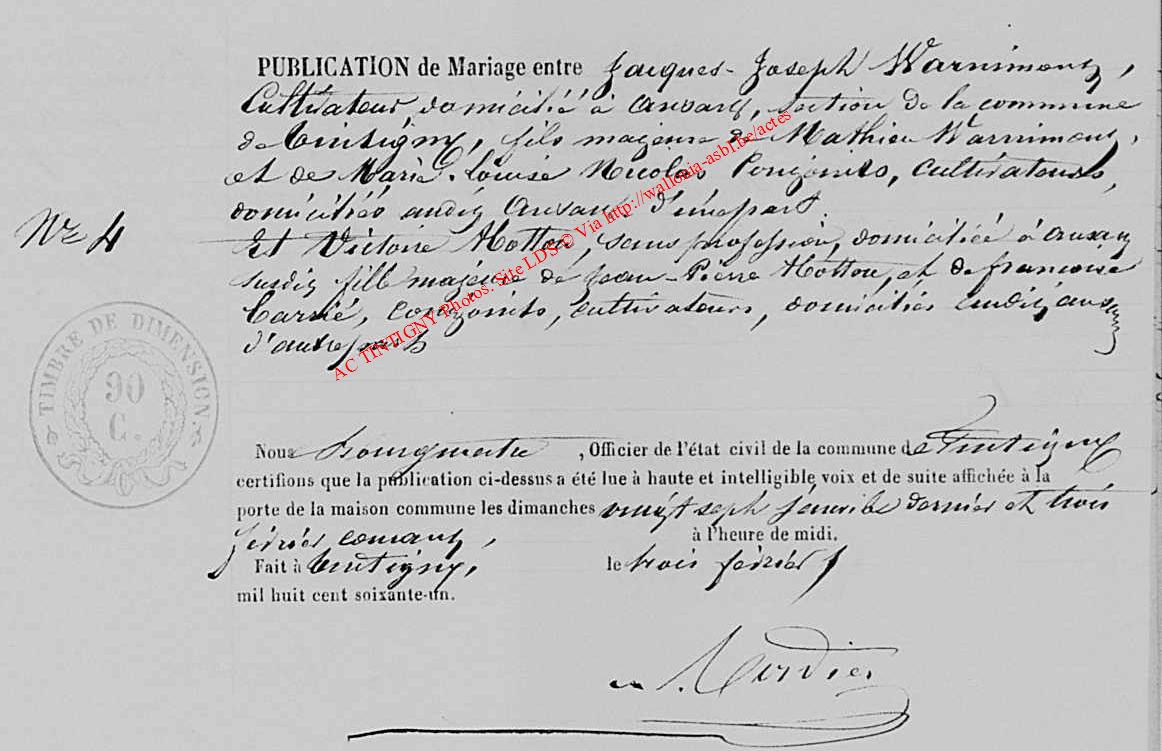 PUBLICATION de Mariage entre Jacques-Joseph Warnimont,
Cultivateur, domicilié à Ansart, section de la commune
de Tintigny, fils majeur de Mathieu Warnimont,
et de Marie-Louise Nicolas, Conjoints, cultivateurs,
domiciliés audit Ansart d'une part.
Nr 4
Et Victoire Hotton, sans profession, domiciliée à Ansart
susdit fille majeure de Jean-Pierre Hotton, et de françoise
Carré, conjoints, cultivateurs, domiciliés audit ansart
d'autre part
TIMBRE DE DIMENSION
90
C.
Nous Bourgmestre, Officier de l'état civil de la commune de Tintigny
certifions que la publication ci-dessus a été lue à haute et intelligible voix et de suite affichée à la
porte de la maison commune les dimanches vingt sept janvier dernier et trois
février courant, à l'heure de midi.
Fait à Tintigny, le trois février
mil huit cent soixante-un.
AC TINTIGNY Photos: Site LDS © Via http://wallonia-asbl.be/actes